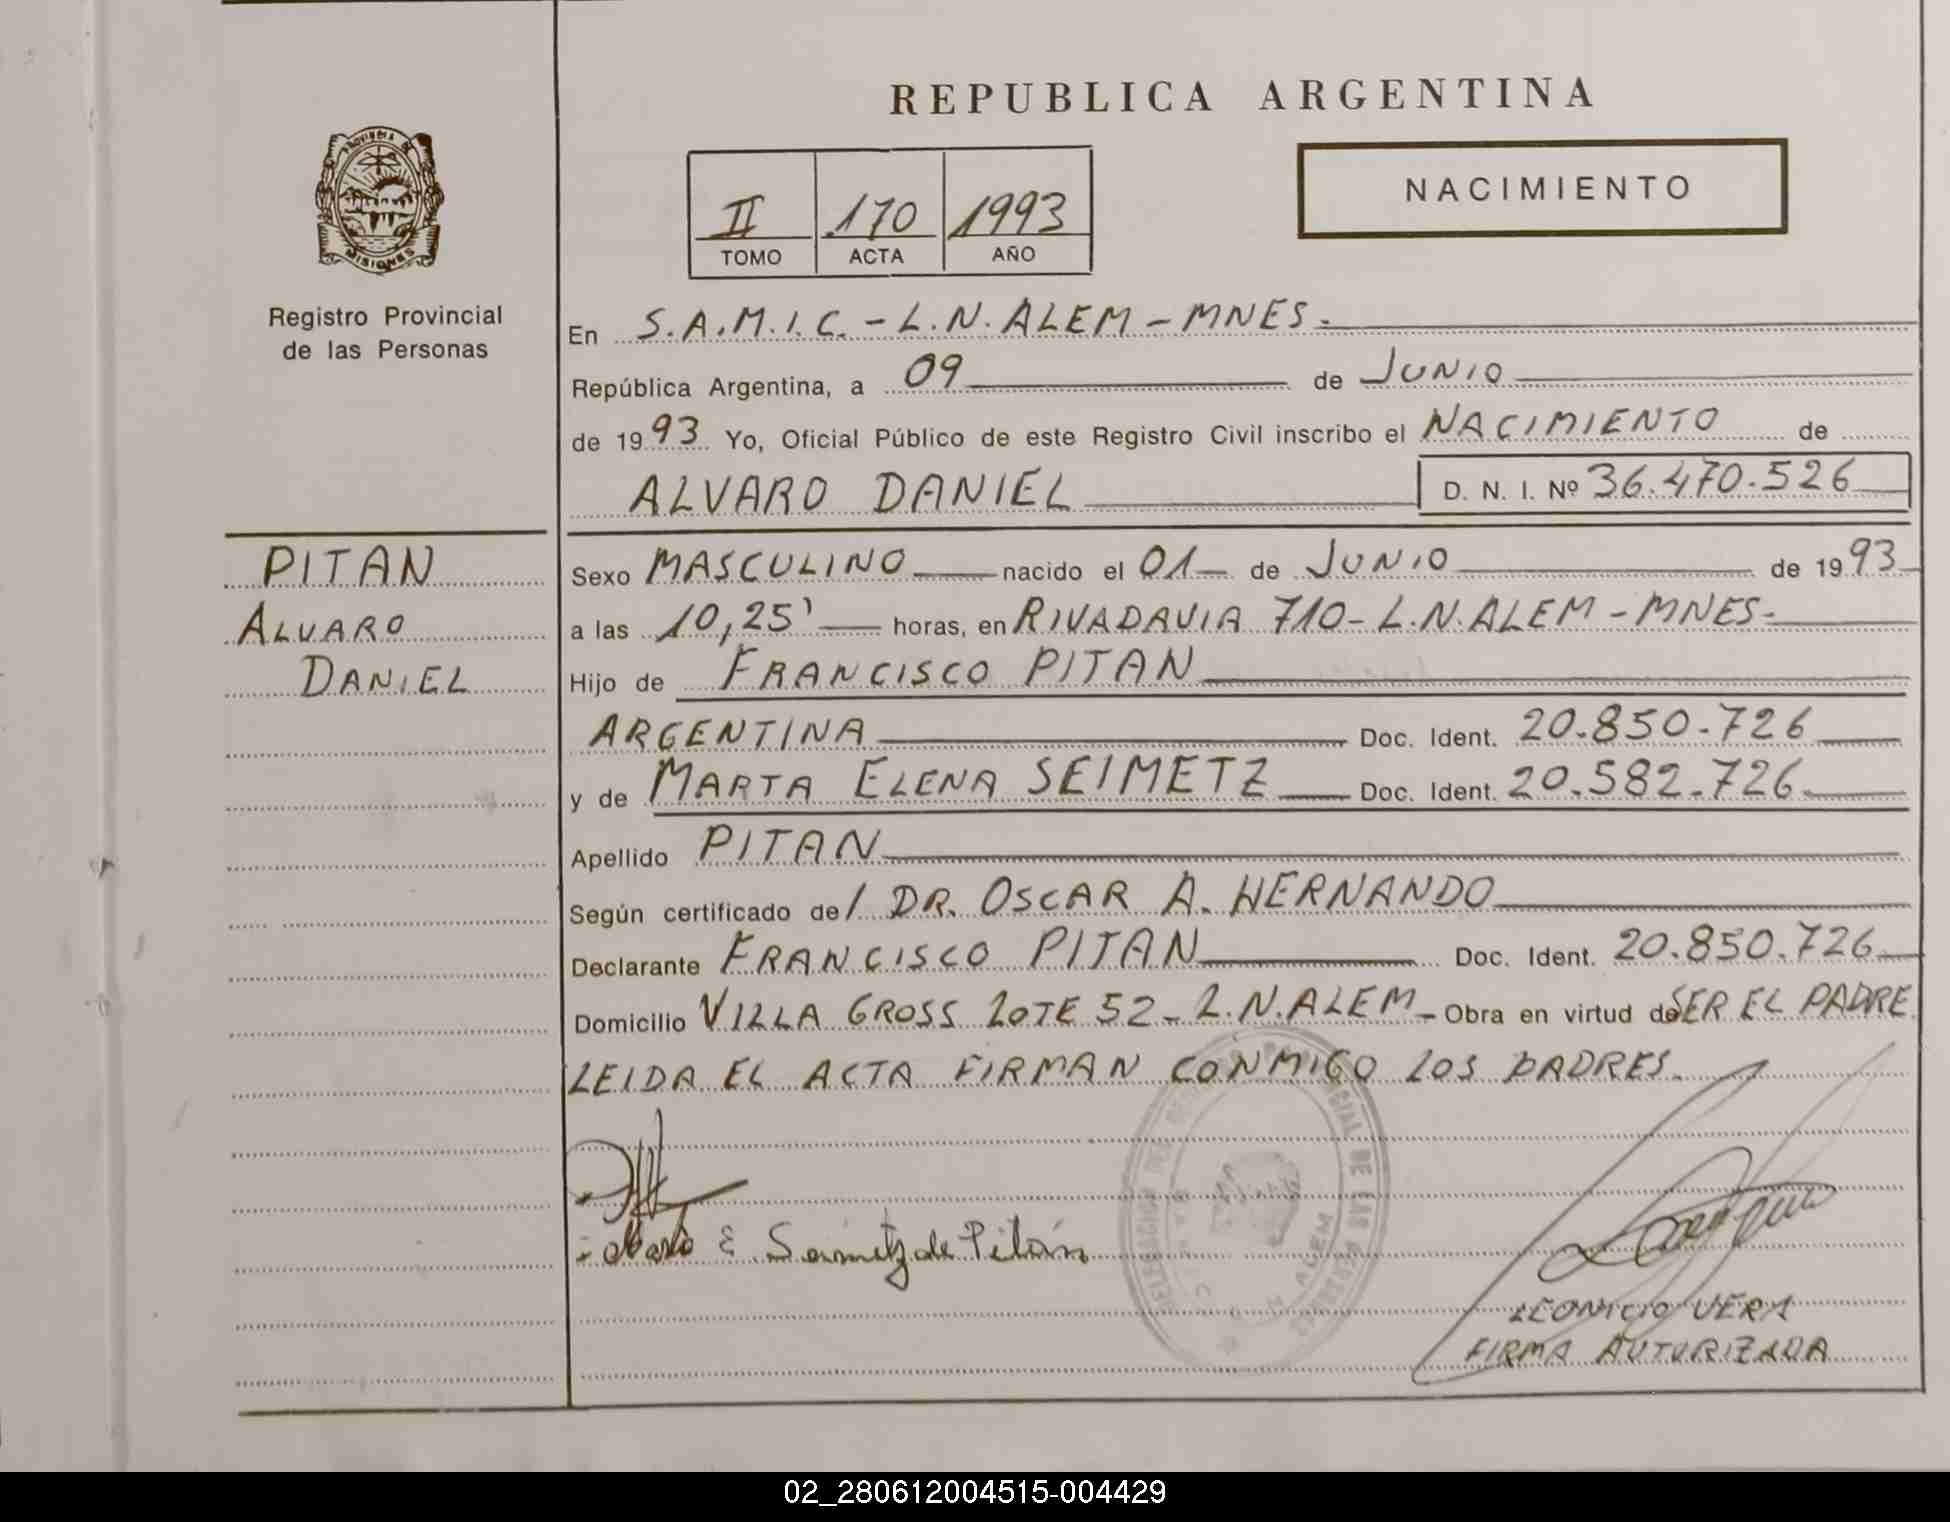 REPUBLICA ARGENTINA
NACIMIENTO
II 170 1993
TOMO ACTA AÑO
PROVINCIA DE
MISIONES
Registro Provincial
de las Personas
En S.A.M.I.C. - L.N. ALEM - MNES.
República Argentina, a 09 de JUNIO
de 1993 Yo, Oficial Público de este Registro Civil inscribo el NACIMIENTO de
ALVARO DANIEL D. N. I. Nº 36.470.526
PITAN
ALVARO
DANIEL
Sexo MASCULINO nacido el 01 de JUNIO de 1993
a las 10,25' horas, en RIVADAVIA 710 - L.N. ALEM - MNES.
Hijo de FRANCISCO PITAN
ARGENTINA Doc. Ident. 20.850.726
y de MARTA ELENA SEIMETZ Doc. Ident. 20.582.726
Apellido PITAN
Según certificado de/ DR. OSCAR A. HERNANDO
Declarante FRANCISCO PITAN Doc. Ident. 20.850.726
Domicilio VILLA GROSS LOTE 52 - L.N. ALEM - Obra en virtud de SER EL PADRE
LEIDA EL ACTA FIRMAN CONMIGO LOS PADRES.
E Seimetz de Pitan
DELEGACION DEL REGISTRO PROVINCIAL DE LAS PERSONAS
N. ALEM
LEONICIO VERA
FIRMA AUTORIZADA
02_280612004515-004429